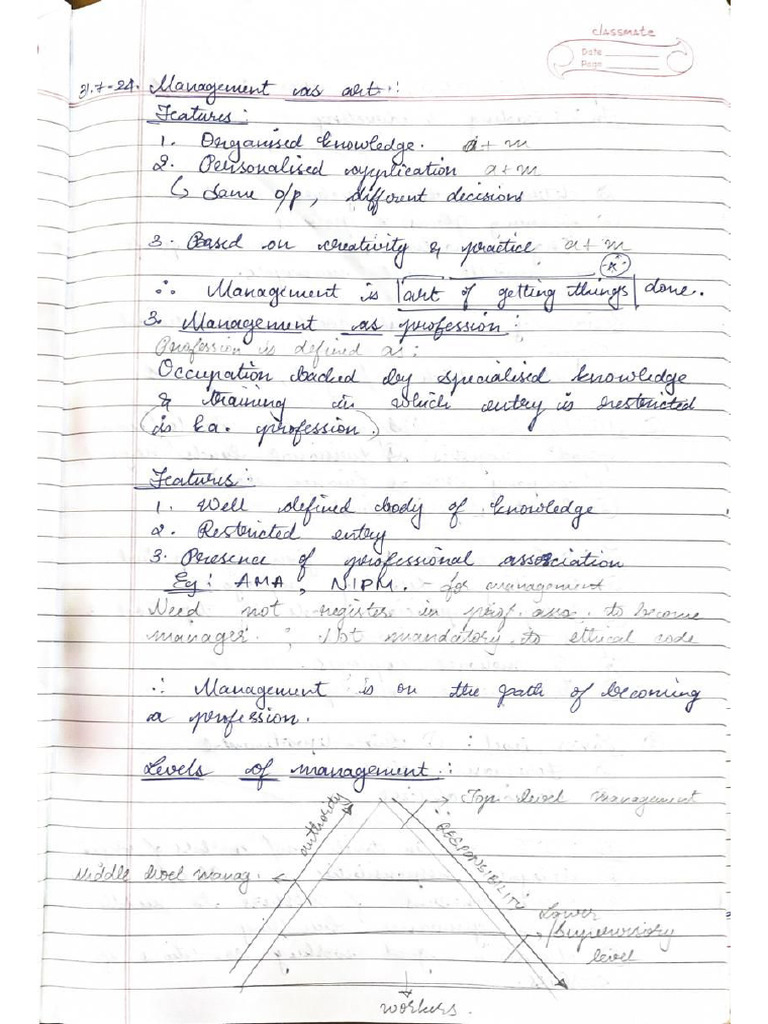 classmate
Date
Page
31.7-24. Management as art:
Features:
1. Organised knowledge. a+m
2. Personalised application a+m
↳ same o/p, different decisions
3. Based on creativity & practice a+m
∴ Management is art of getting things done.
3. Management as profession:
Profession is defined as:
Occupation backed by specialised knowledge
& training in which entry is restricted
(is ka. profession.)
Features:
1. Well defined body of knowledge
2. Restricted entry
3. Presence of professional association
Eg: AMA, NIPM. - for management
Need not register in prof. asso. to become
manager. ; Not mandatory to ethical code
∴ Management is on the path of becoming
a profession.
Levels of management:
Top level management
authority
RESPONSIBILITY
Middle level manag.
Lower
/supervisory
level
workers.